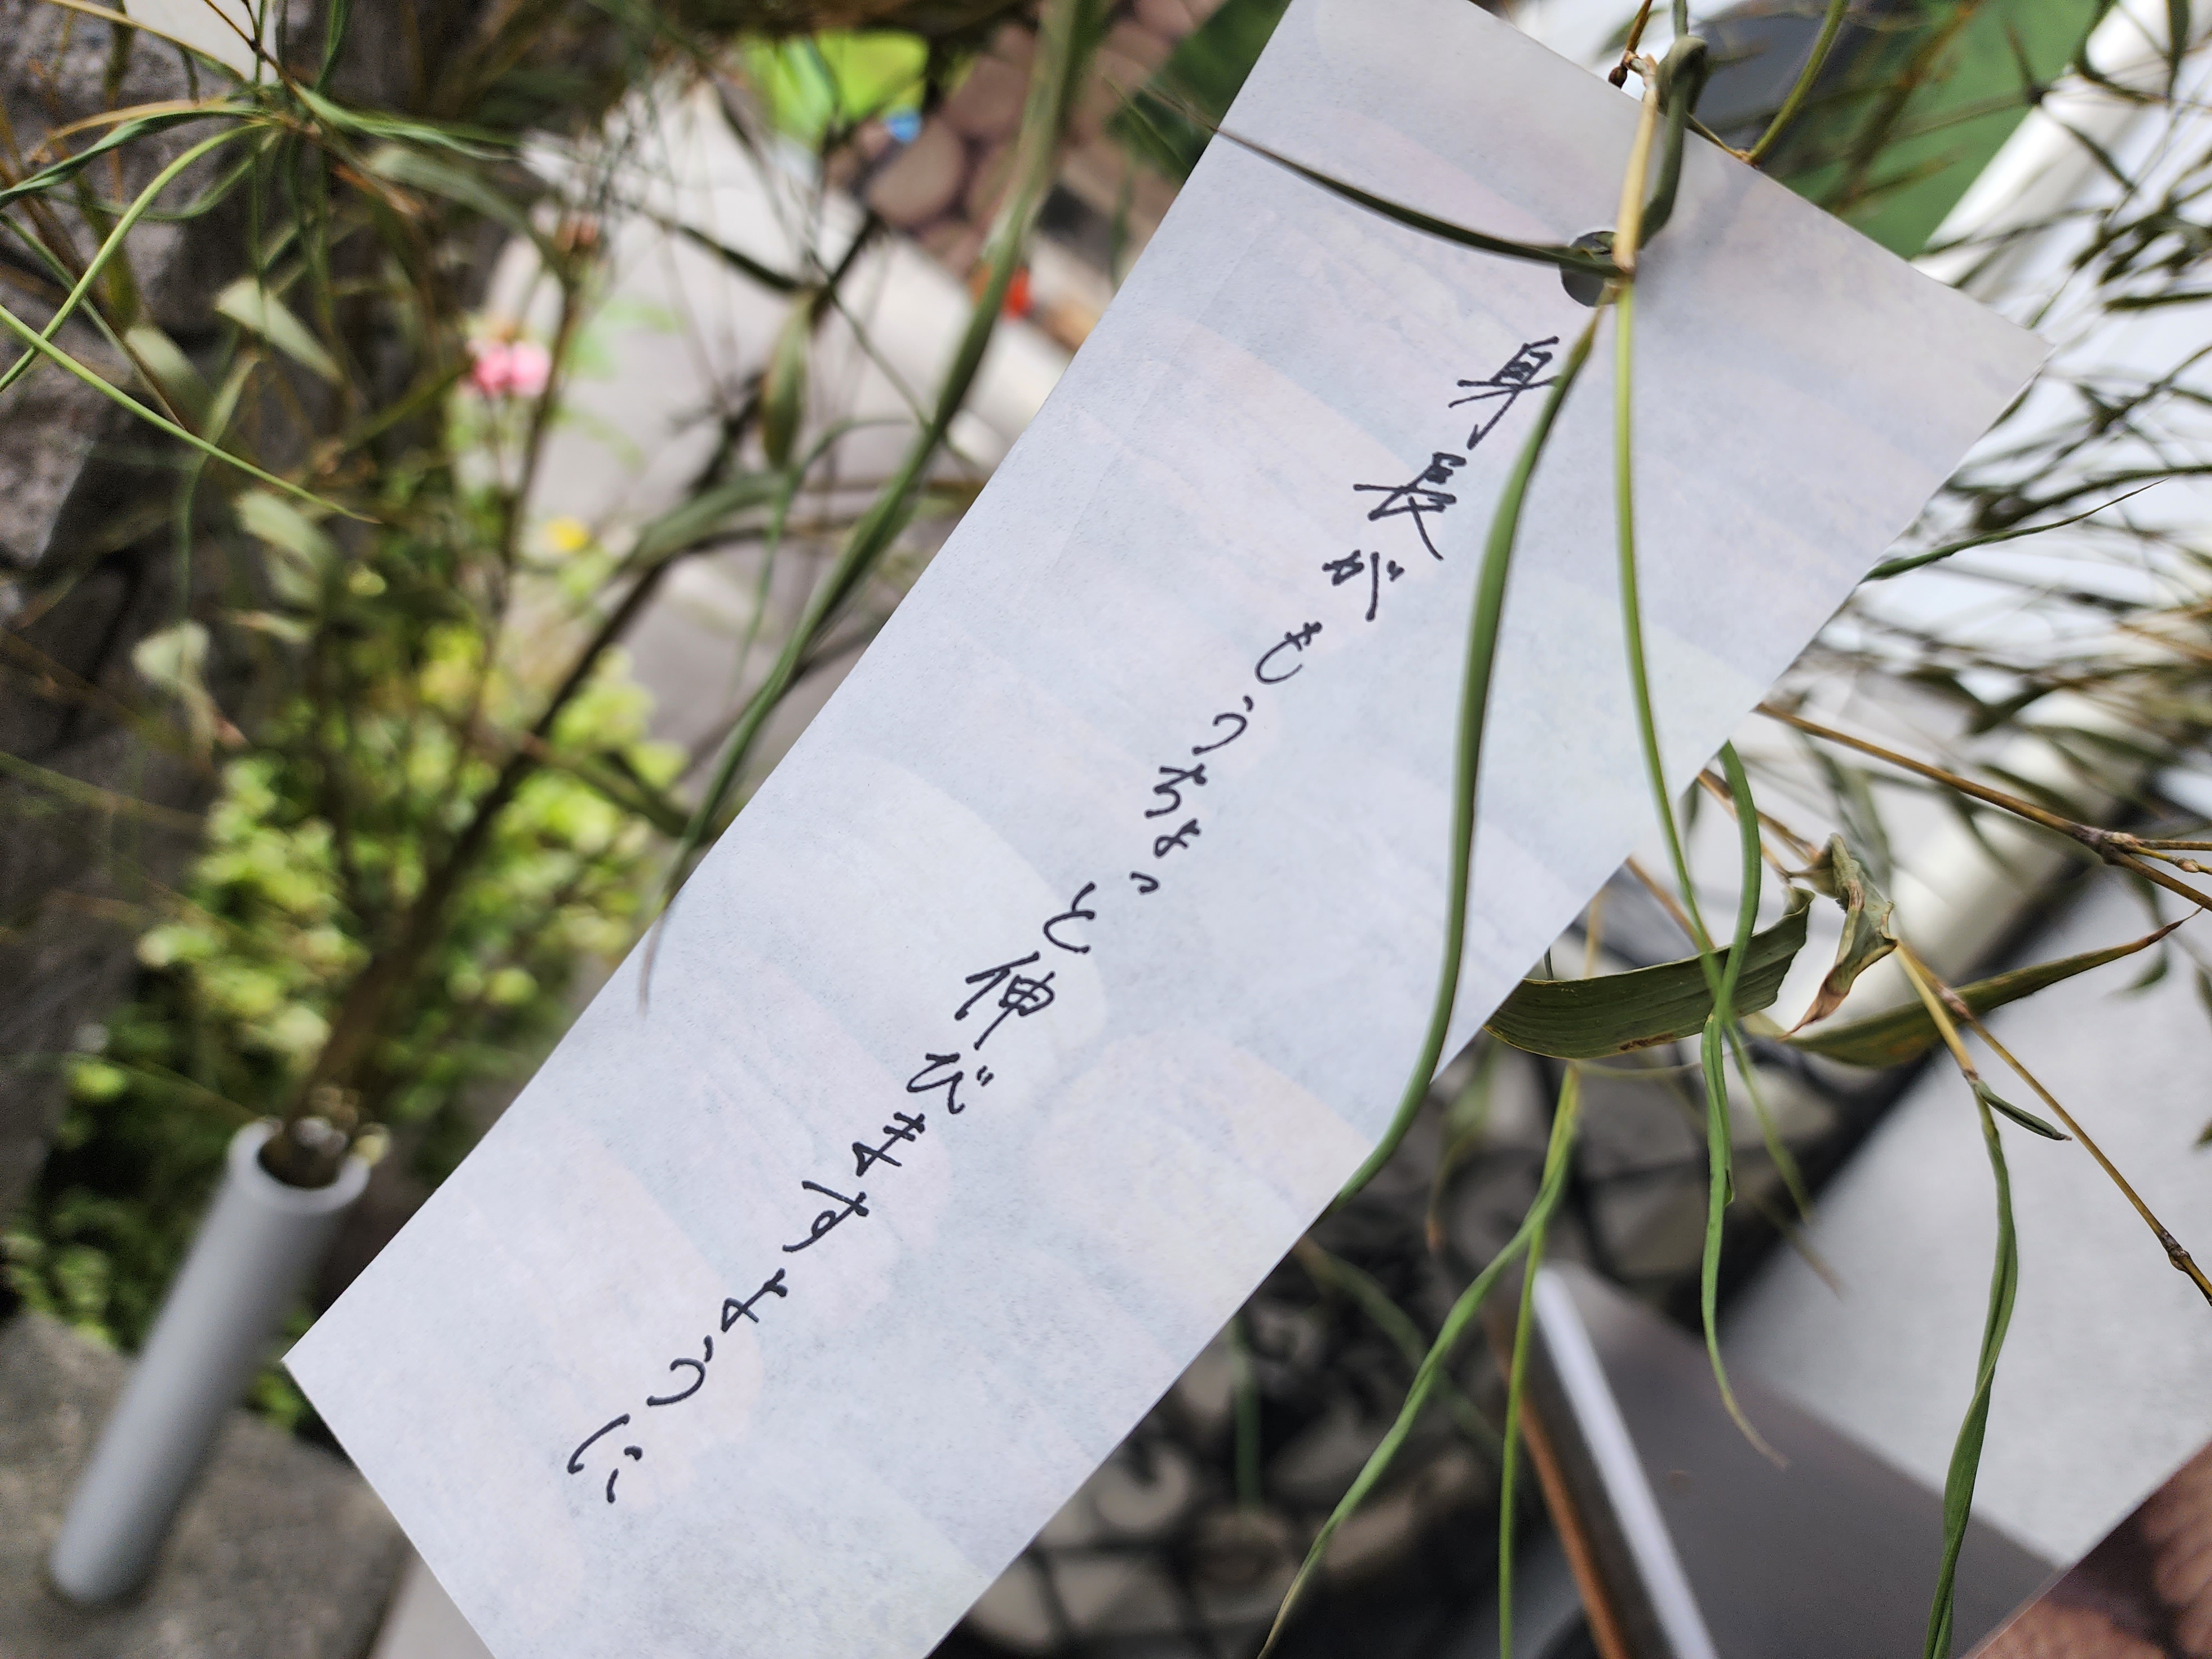 身長がもうちょっと伸びますように